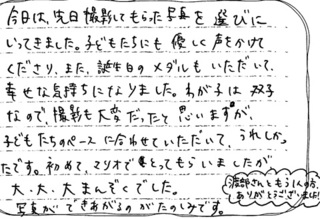 今日は、先日撮影してもらった写真を選びに
いってきました。子どもたちにも優しく声をかけて
くださり、また、誕生日のメダルもいただいて、
幸せな気持ちになりました。わが子は双子
なので、撮影も大変だったと思いますが、
子どもたちのペースに合わせていただいて、うれしかっ
たです。初めて、マリオでとってもらいましたが
大、大、大まんぞくでした。
写真ができあがるのがたのしみです。
渡部さんともう1人の方、
ありがとうございました!